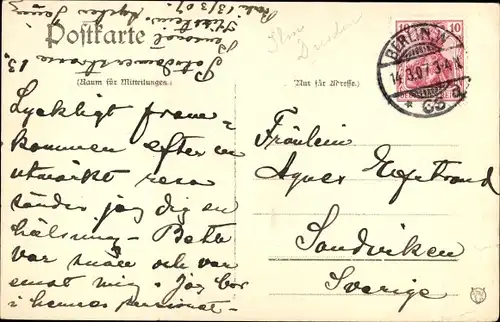 Berlin 13/3 07.
Postkarte
Potsdamerstrasse 13.
(Raum für Mitteilungen.)
(Nur für Adresse.)
10 10
BERLIN. W.
14.3.07.3-4N.
* 35 a.
Lyckligt fram-
kommen efter en
utmärkt resa
sänder jag dig en
hälsning. Beth
var snäll och var
emot mig. Jag bor
i hennes pensionat-
Fräulein
Agnes
Sandviken
Sverige